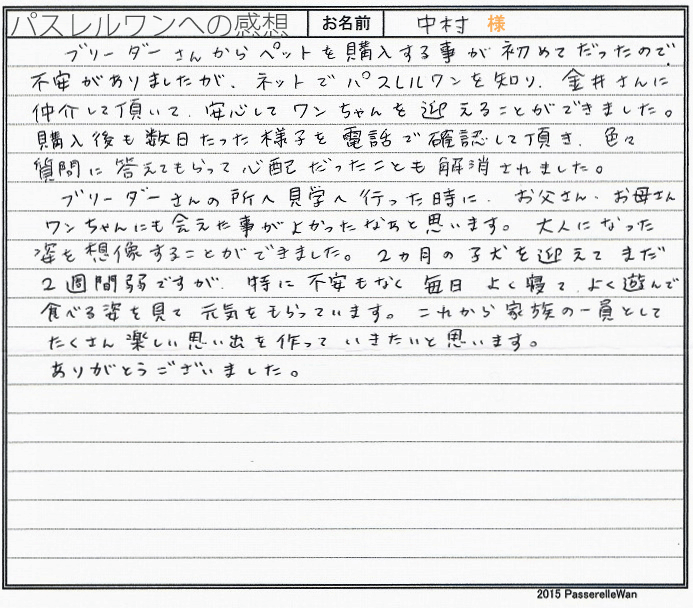 パスレルワンへの感想 お名前 中村 様
ブリーダーさんからペットを購入する事が初めてだったので
不安がありましたが、ネットでパスレルワンを知り、金井さんに
仲介して頂いて、安心してワンちゃんを迎えることができました。
購入後も数日たった様子を電話で確認して頂き、色々
質問に答えてもらって心配だったことも解消されました。
ブリーダーさんの所へ見学へ行った時に、お父さん、お母さん
ワンちゃんにも会えた事がよかったなぁと思います。大人になった
姿を想像することができました。2ヵ月の子犬を迎えてまだ
2週間弱ですが、特に不安もなく毎日よく寝て、よく遊んで
食べる姿を見て元気をもらっています。これから家族の一員として
たくさん楽しい思い出を作っていきたいと思います。
ありがとうございました。
2015 PasserelleWan